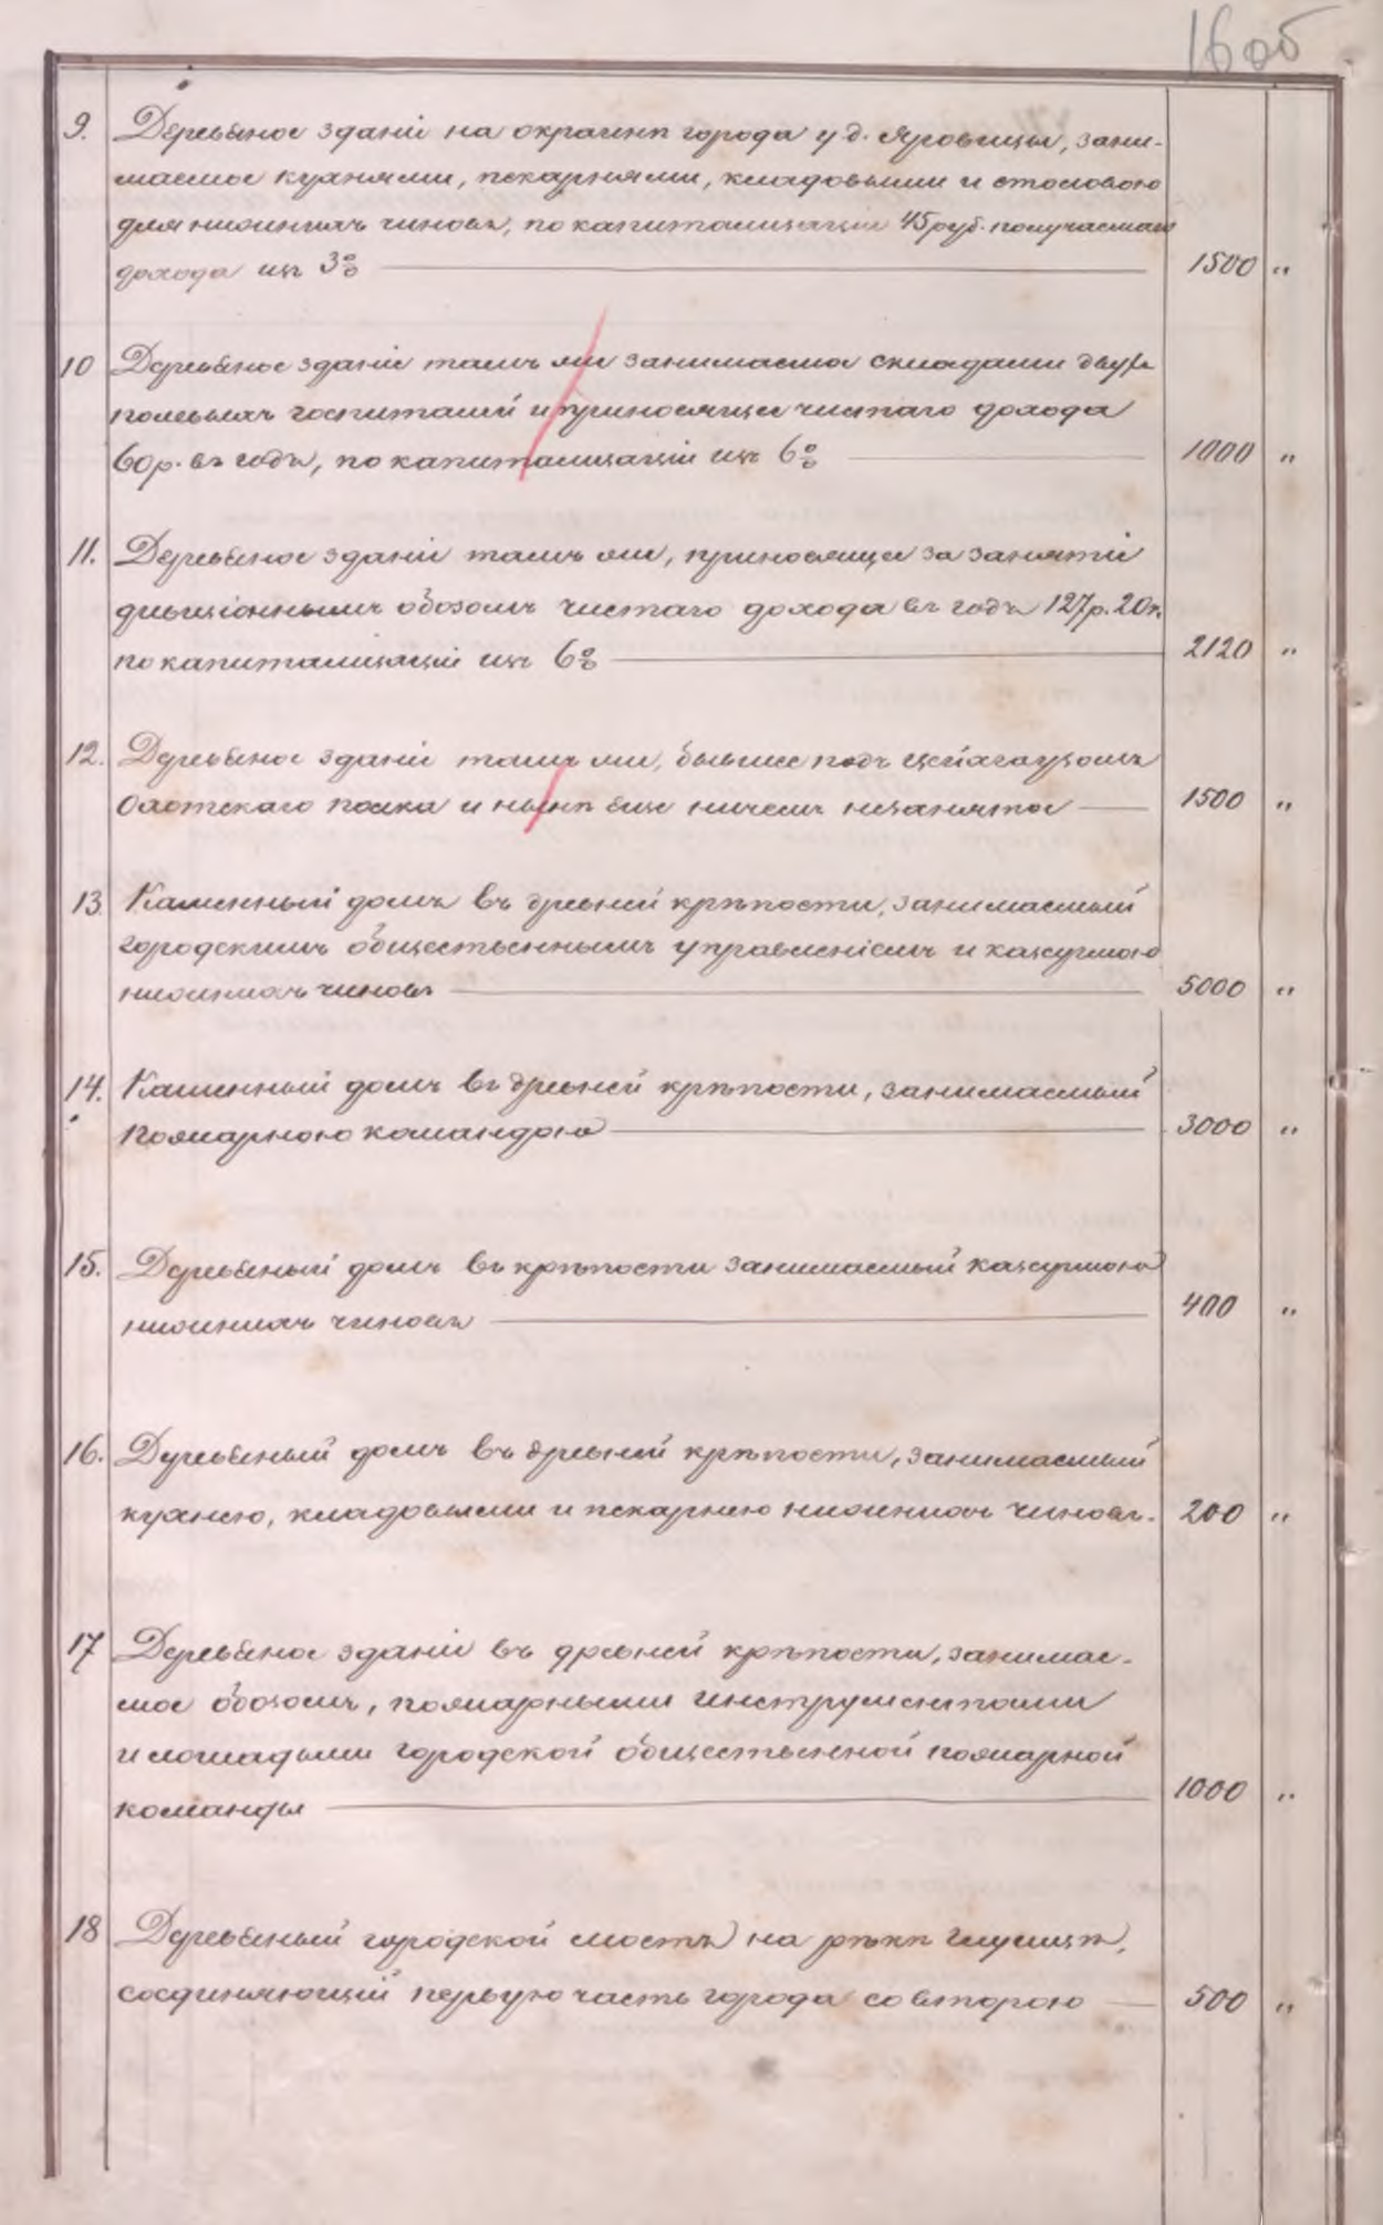 16 об
9. Деревяное зданіе на окраинѣ города у д. Яровицы, зани-
маемое кухнями, пекарнями, кладовыми и столовою
для нижнихъ чиновъ, по капитализаціи 45 руб. получаемаго
дохода изъ 3% 1500 „
10 Деревяное зданіе тамъ же занимаемое складами двухъ
полевыхъ госпиталей и приносящее чистаго дохода
60 р. въ годъ, по капитализаціи изъ 6% 1000 „
11. Деревяное зданіе тамъ же, приносящее за занятіе
дивизіоннымъ обозомъ чистаго дохода въ годъ 127 р. 20 к.
по капитализаціи изъ 6% 2120 „
12. Деревяное зданіе тамъ же, бывшее подъ цейхгаузомъ
Охотскаго полка и нынѣ еще ничемъ незанятое 1500 „
13 Каменный домъ въ древней крѣпости, занимаемый
городскимъ общественнымъ управленіемъ и казармою
нижнихъ чиновъ 5000 „
14. Каменный домъ въ древней крѣпости, занимаемый
пожарною командою 3000 „
15. Деревяный домъ въ крѣпости занимаемый казармою
нижнихъ чиновъ 400 „
16. Деревяный домъ въ древней крѣпости, занимаемый
кухнею, кладовыми и пекарнею нижнихъ чиновъ. 200 „
17 Деревяное зданіе въ древней крѣпости, занимае-
мое обозомъ, пожарными инструментами
и лошадьми городской общественной пожарной
команды 1000 „
18 Деревяный городской мостъ на рѣкѣ Глушцѣ,
соединяющій первую часть города со второю 500 „